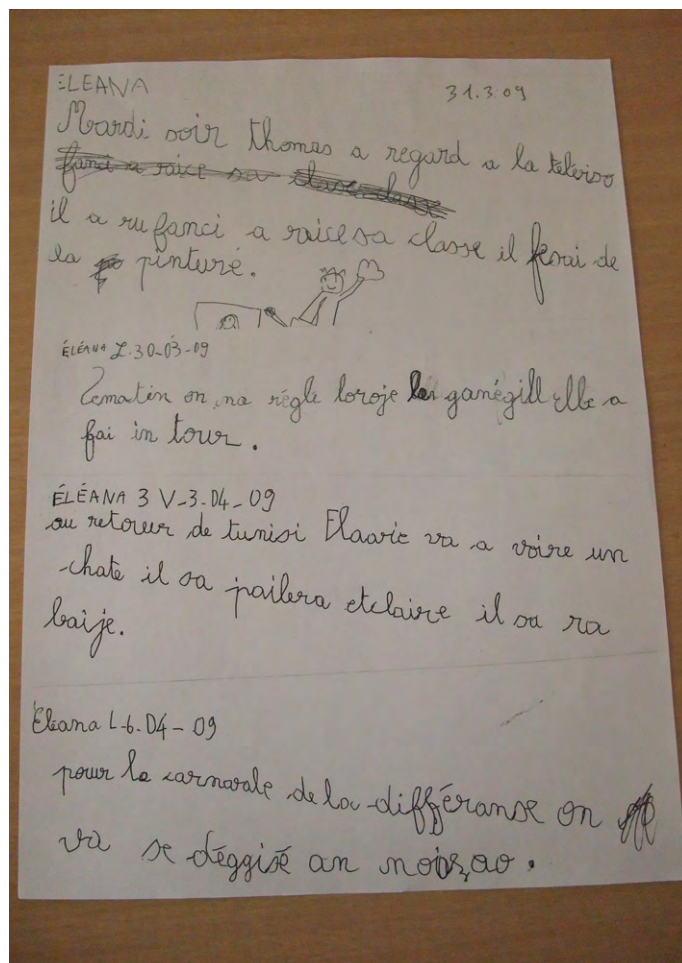 ÉLEANA 31.3.09
Mardi soir thomas a regard a la televiso
fanci a raice sa classe classe
il a vu fanci a raice sa classe il fesai de
la pinturé.
ÉLÉANA L.30-03-09
Cematin on na réglé loroje les ganégill elle a
fai in tour.
ÉLÉANA 3 V-3-04-09
au retoure de tunisi Elaavic va a voire un
chate il sa pailera etclaire il sa ra
baije.
Eléana L-6-04-09
pour le carnavale de la différanse on
va se déggisé an noizao.